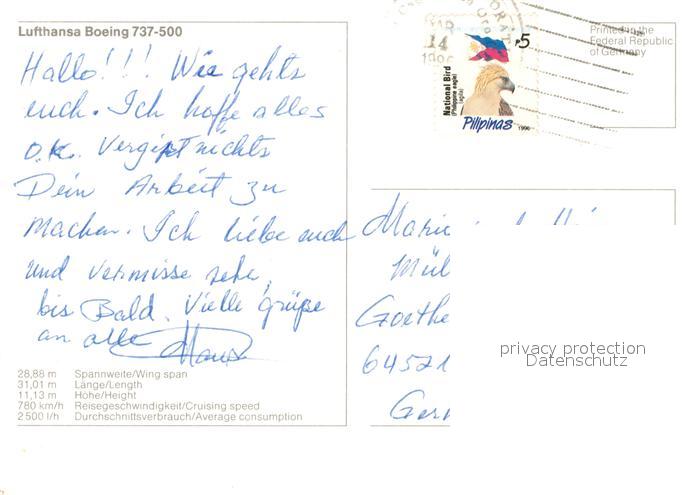 Lufthansa Boeing 737-500
Hallo!!! Wie gehts
euch. Ich hoffe alles
o.k. Vergißt nichts
Dein Arbeit zu
Machen. Ich liebe euch
und vermisse sehr,
bis Bald. Vielle grüße
an alle
28,88 m Spannweite/Wing span
31,01 m Länge/Length
11,13 m Höhe/Height
780 km/h Reisegeschwindigkeit/Cruising speed
2 500 l/h Durchschnittsverbrauch/Average consumption
14
P5
National Bird
(Philippine eagle)
(agila)
Pilipinas
1996
Printed in the
Federal Republic
of Germany
Maria
Mül
Goethe
64521
Ger
privacy protection
Datenschutz